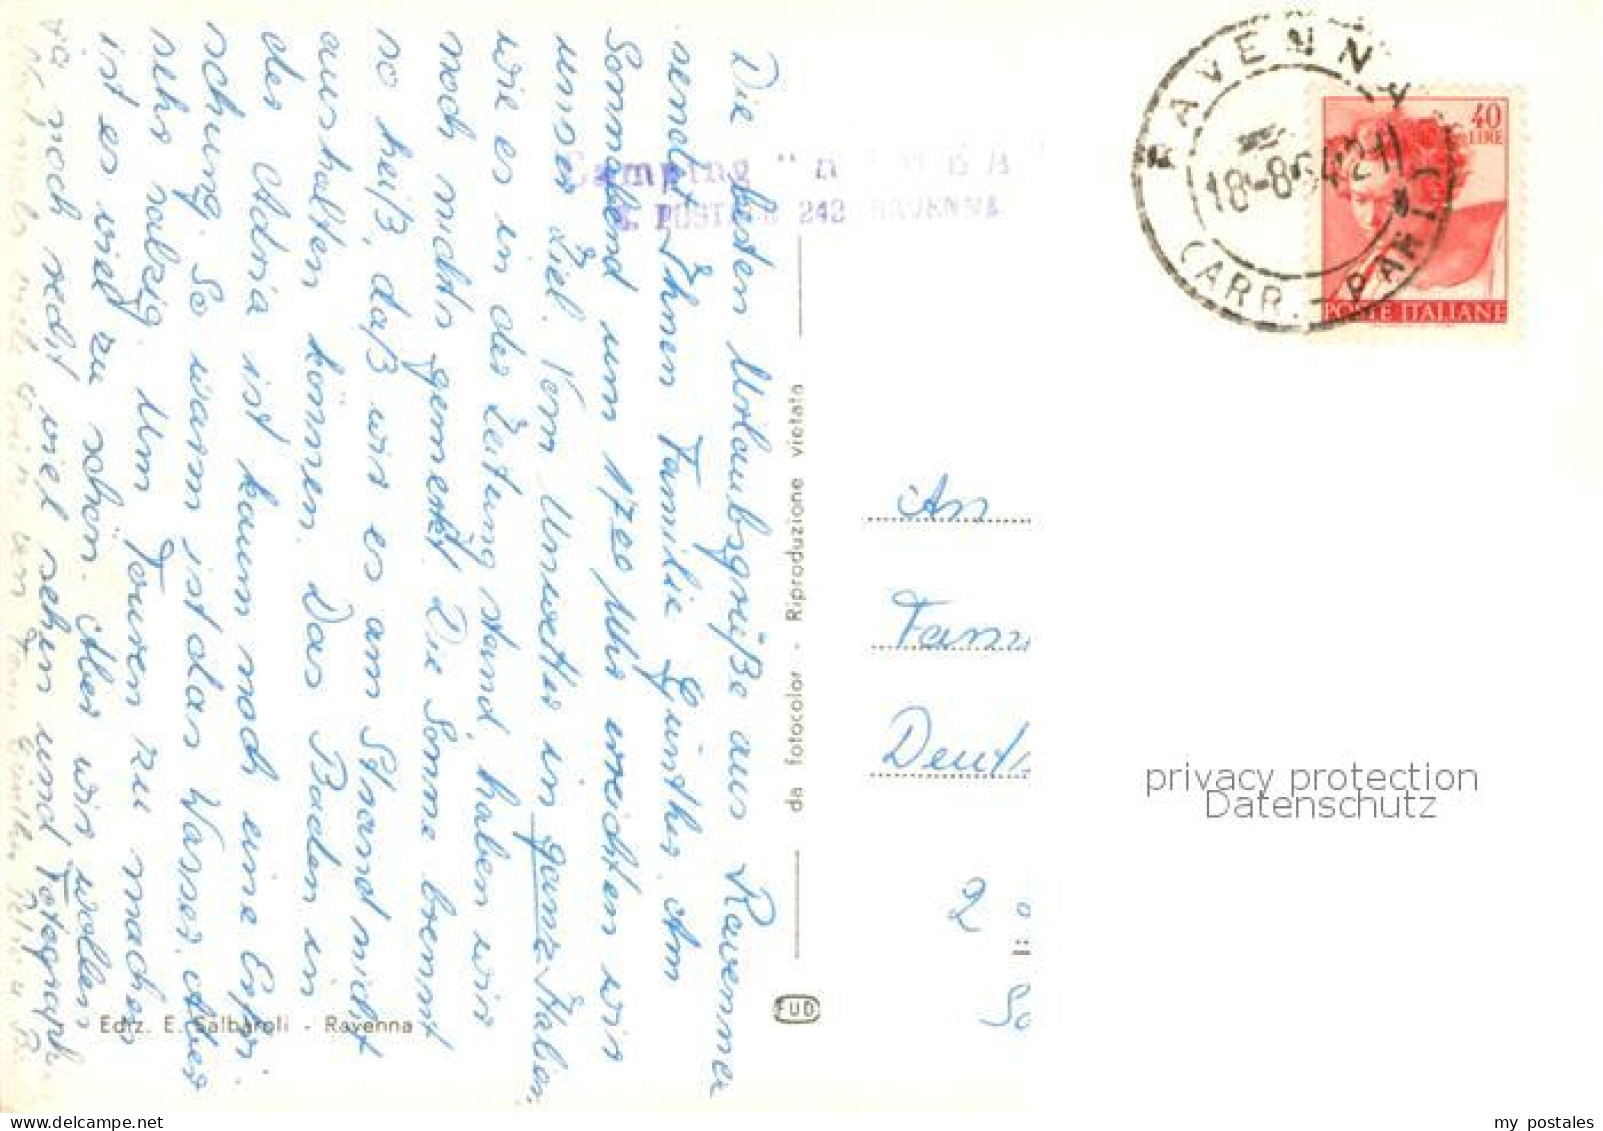 Die besten Urlaubsgrüße aus Ravenna
sendet Ihnen Familie Günther. Am
Sonnabend um 17 00 Uhr erreichten wir
unser Ziel. Vom Unwetter in ganz Italien,
wie es in der Zeitung stand, haben wir
noch nichts gemerkt. Die Sonne brennt
so heiß, daß wir es am Strand nicht
aushalten können. Das Baden in
der Adria ist kaum noch eine Erfri-
schung. So warm ist das Wasser. Aber
sehr salzig. Um Touren zu machen
ist es viel zu schön. Aber wir wollen
ja noch recht viel sehen und fotograph.
Camping
C. POSTALE 242 RAVENNA
da fotocolor - Riproduzione vietata
FUD
Ediz. E. Salbaroli - Ravenna
RAVENNA
18-8-64 21
(ARR. PAR
40
LIRE
POSTE ITALIANE
An
Fam
Deuts
2
privacy protection
Datenschutz
my postales